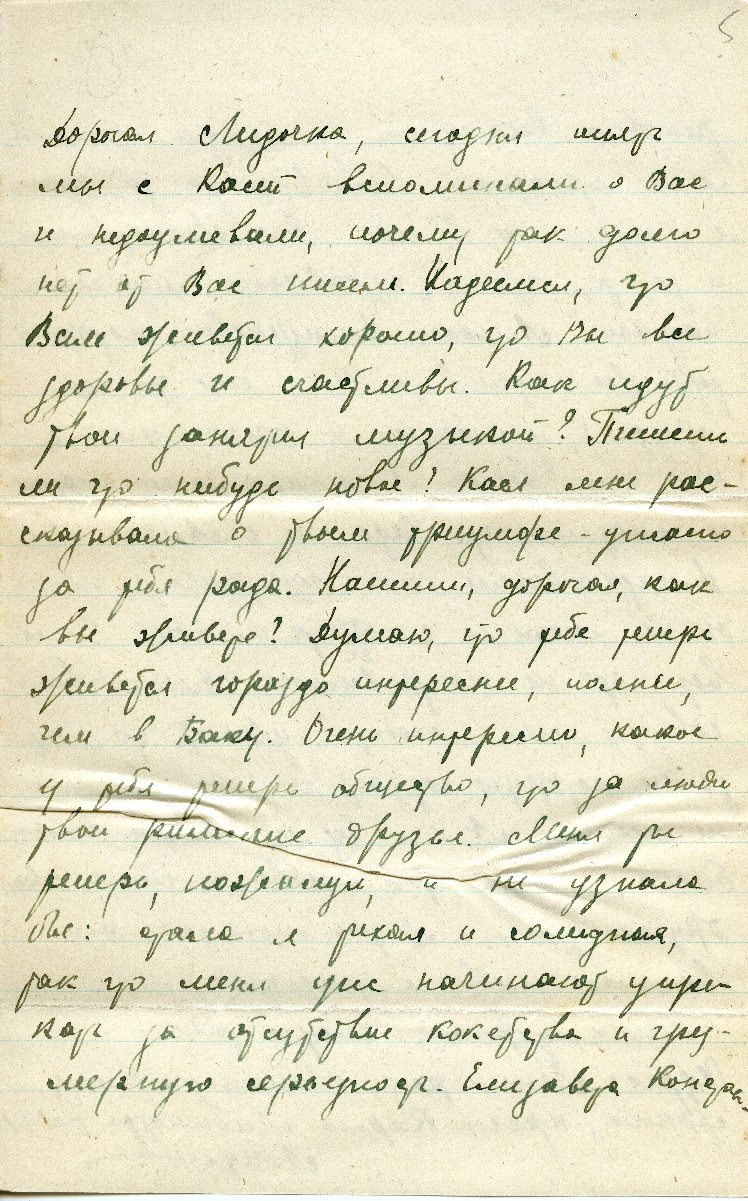 5
Дорогая Лидочка, сегодня опять
мы с Касей вспоминали о Вас
и недоумевали, почему так долго
нет от Вас писем. Надеемся, что
Вам живется хорошо, что Вы все
здоровы и счастливы. Как идут
твои занятия музыкой? Пишешь
ли что нибудь новое? Кася мне рас-
сказывала о твоем триумфе - ужасно
за тебя рада. Напиши, дорогая, как
вы живете? Думаю, что тебе теперь
живется гораздо интереснее, полнее,
чем в Баку. Очень интересно, какое
у тебя теперь общество, что за люди
твои римские друзья. Меня ты
теперь, пожалуй, и не узнала
бы: стала я тихая и солидная,
так что меня уже начинают упре-
кать за отсутствие кокетства и чрез-
мерную серьезность. Елизавета